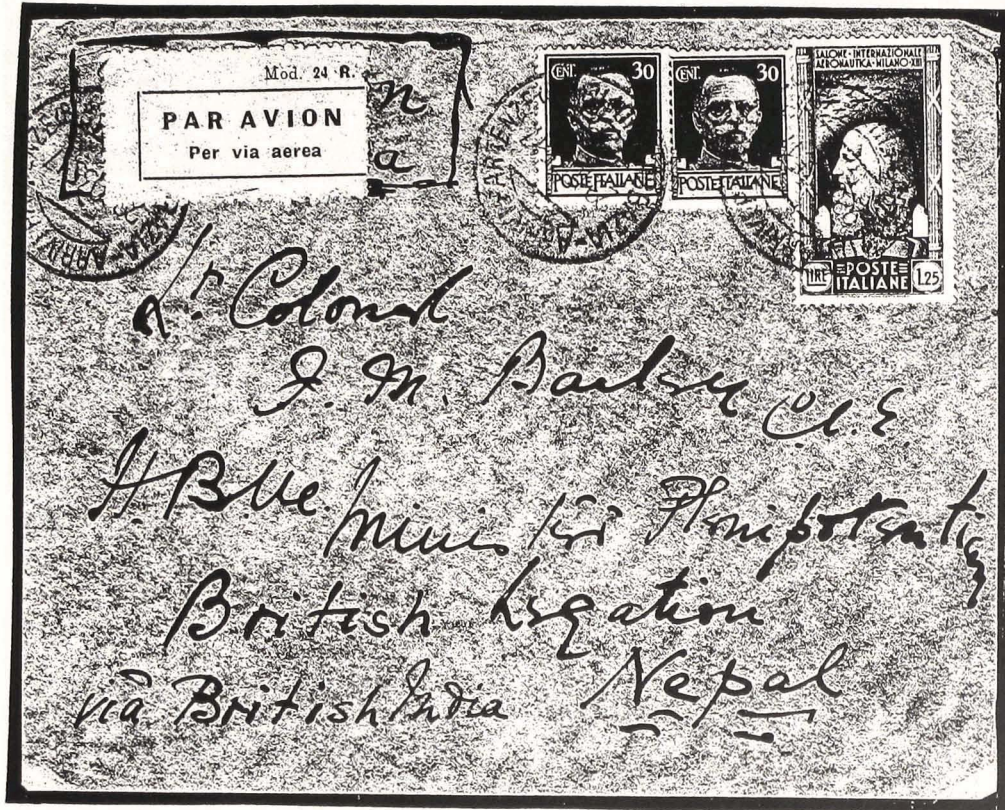 Mod. 24 R.
PAR AVION
Per via aerea
CENT. 30
POSTE ITALIANE
CENT. 30
POSTE ITALIANE
SALONE·INTERNAZIONALE
AERONAUTICA·MILANO·XIII
LIRE POSTE ITALIANE 1.25
FIRENZE
Lt. Colonel
F. M. Bailey C.I.E.
H.B.M.
Minister Plenipotentiary
British Legation
Nepal
via British India